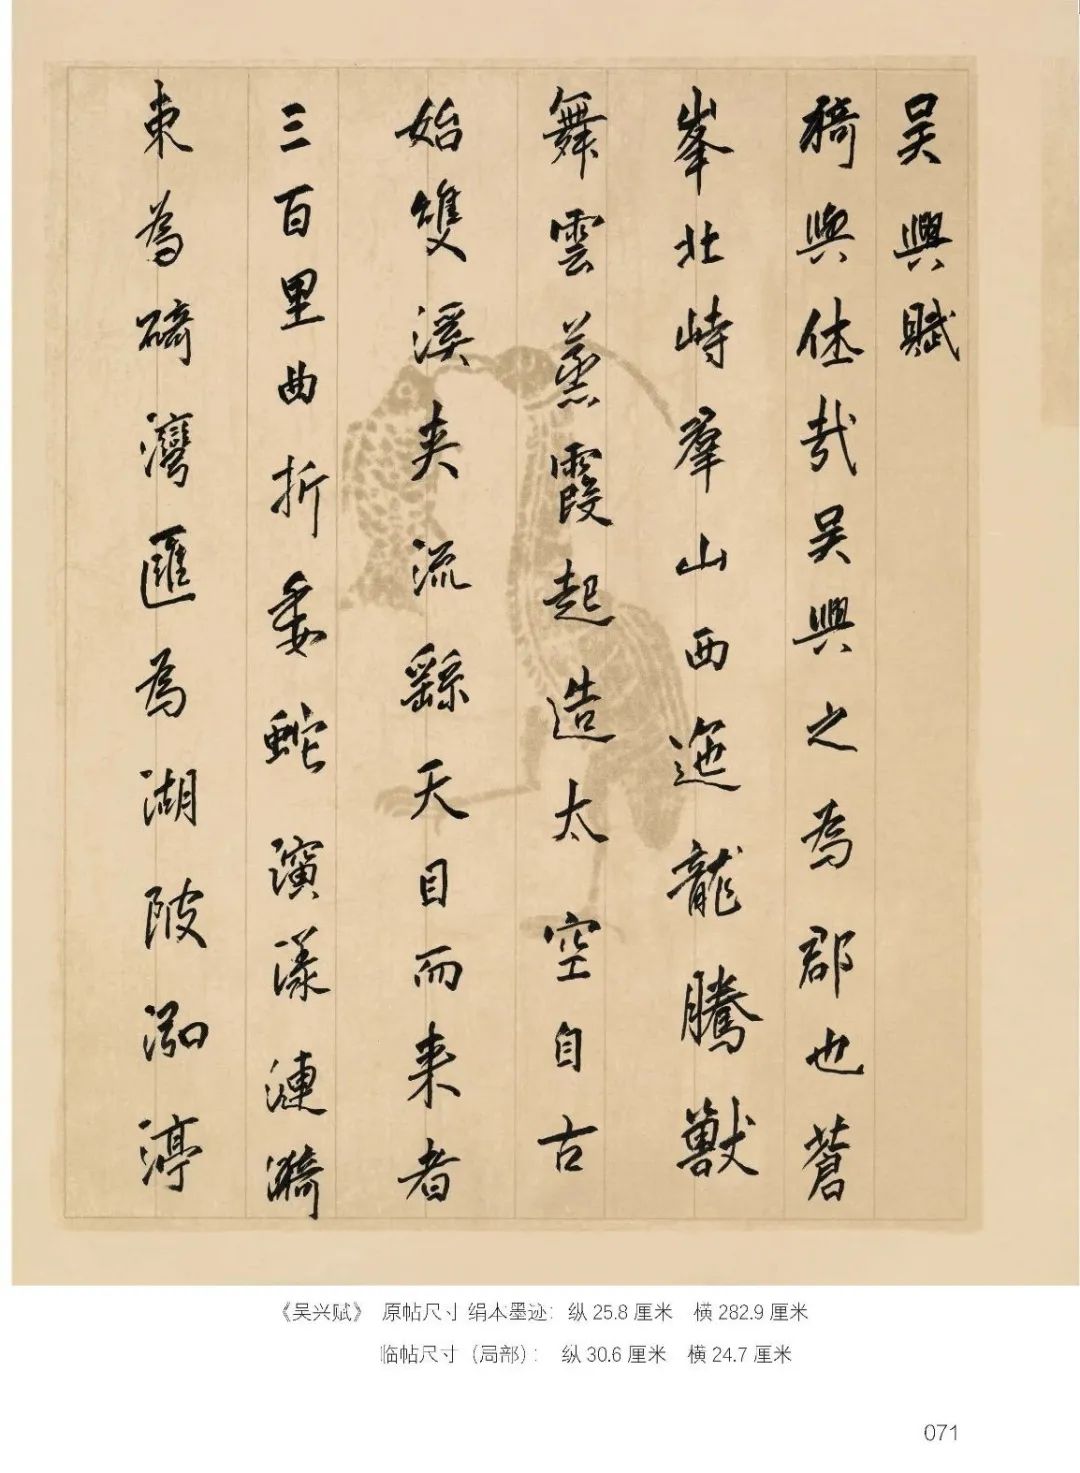 吴興賦
猗與休哉吴興之為郡也蒼
峯北峙羣山西迤龍騰獸
舞雲蒸霞起造太空自古
始雙溪夾流繇天目而来者
三百里曲折委蛇演漾漣漪
束為碕灣匯為湖陂泓渟
《吴兴赋》 原帖尺寸 绢本墨迹： 纵 25.8 厘米 横 282.9 厘米
临帖尺寸（局部）： 纵 30.6 厘米 横 24.7 厘米
071